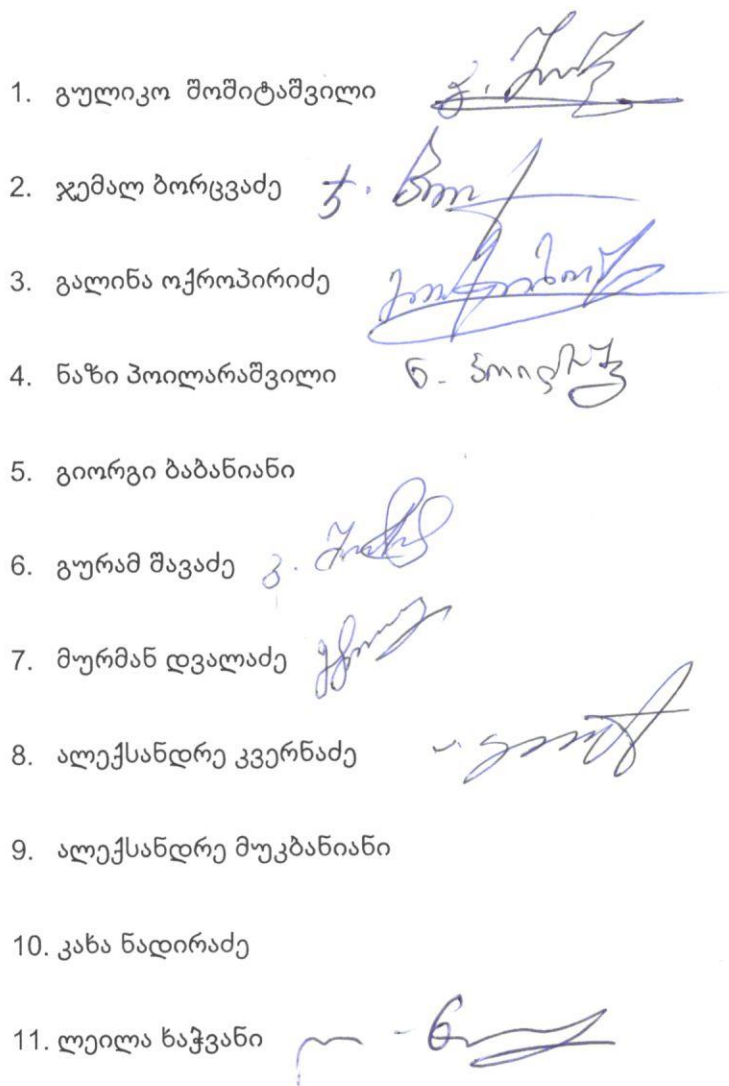 1. გულიკო შოშიტაშვილი
2. ჯემალ ბორცვაძე
3. გალინა ოქროპირიძე
4. ნაზი პოილარაშვილი
5. გიორგი ბაბანიანი
6. გურამ შავაძე
7. მურმან დვალაძე
8. ალექსანდრე კვერნაძე
9. ალექსანდრე მუკბანიანი
10. კახა ნადირაძე
11. ლეილა ხაჭვანი